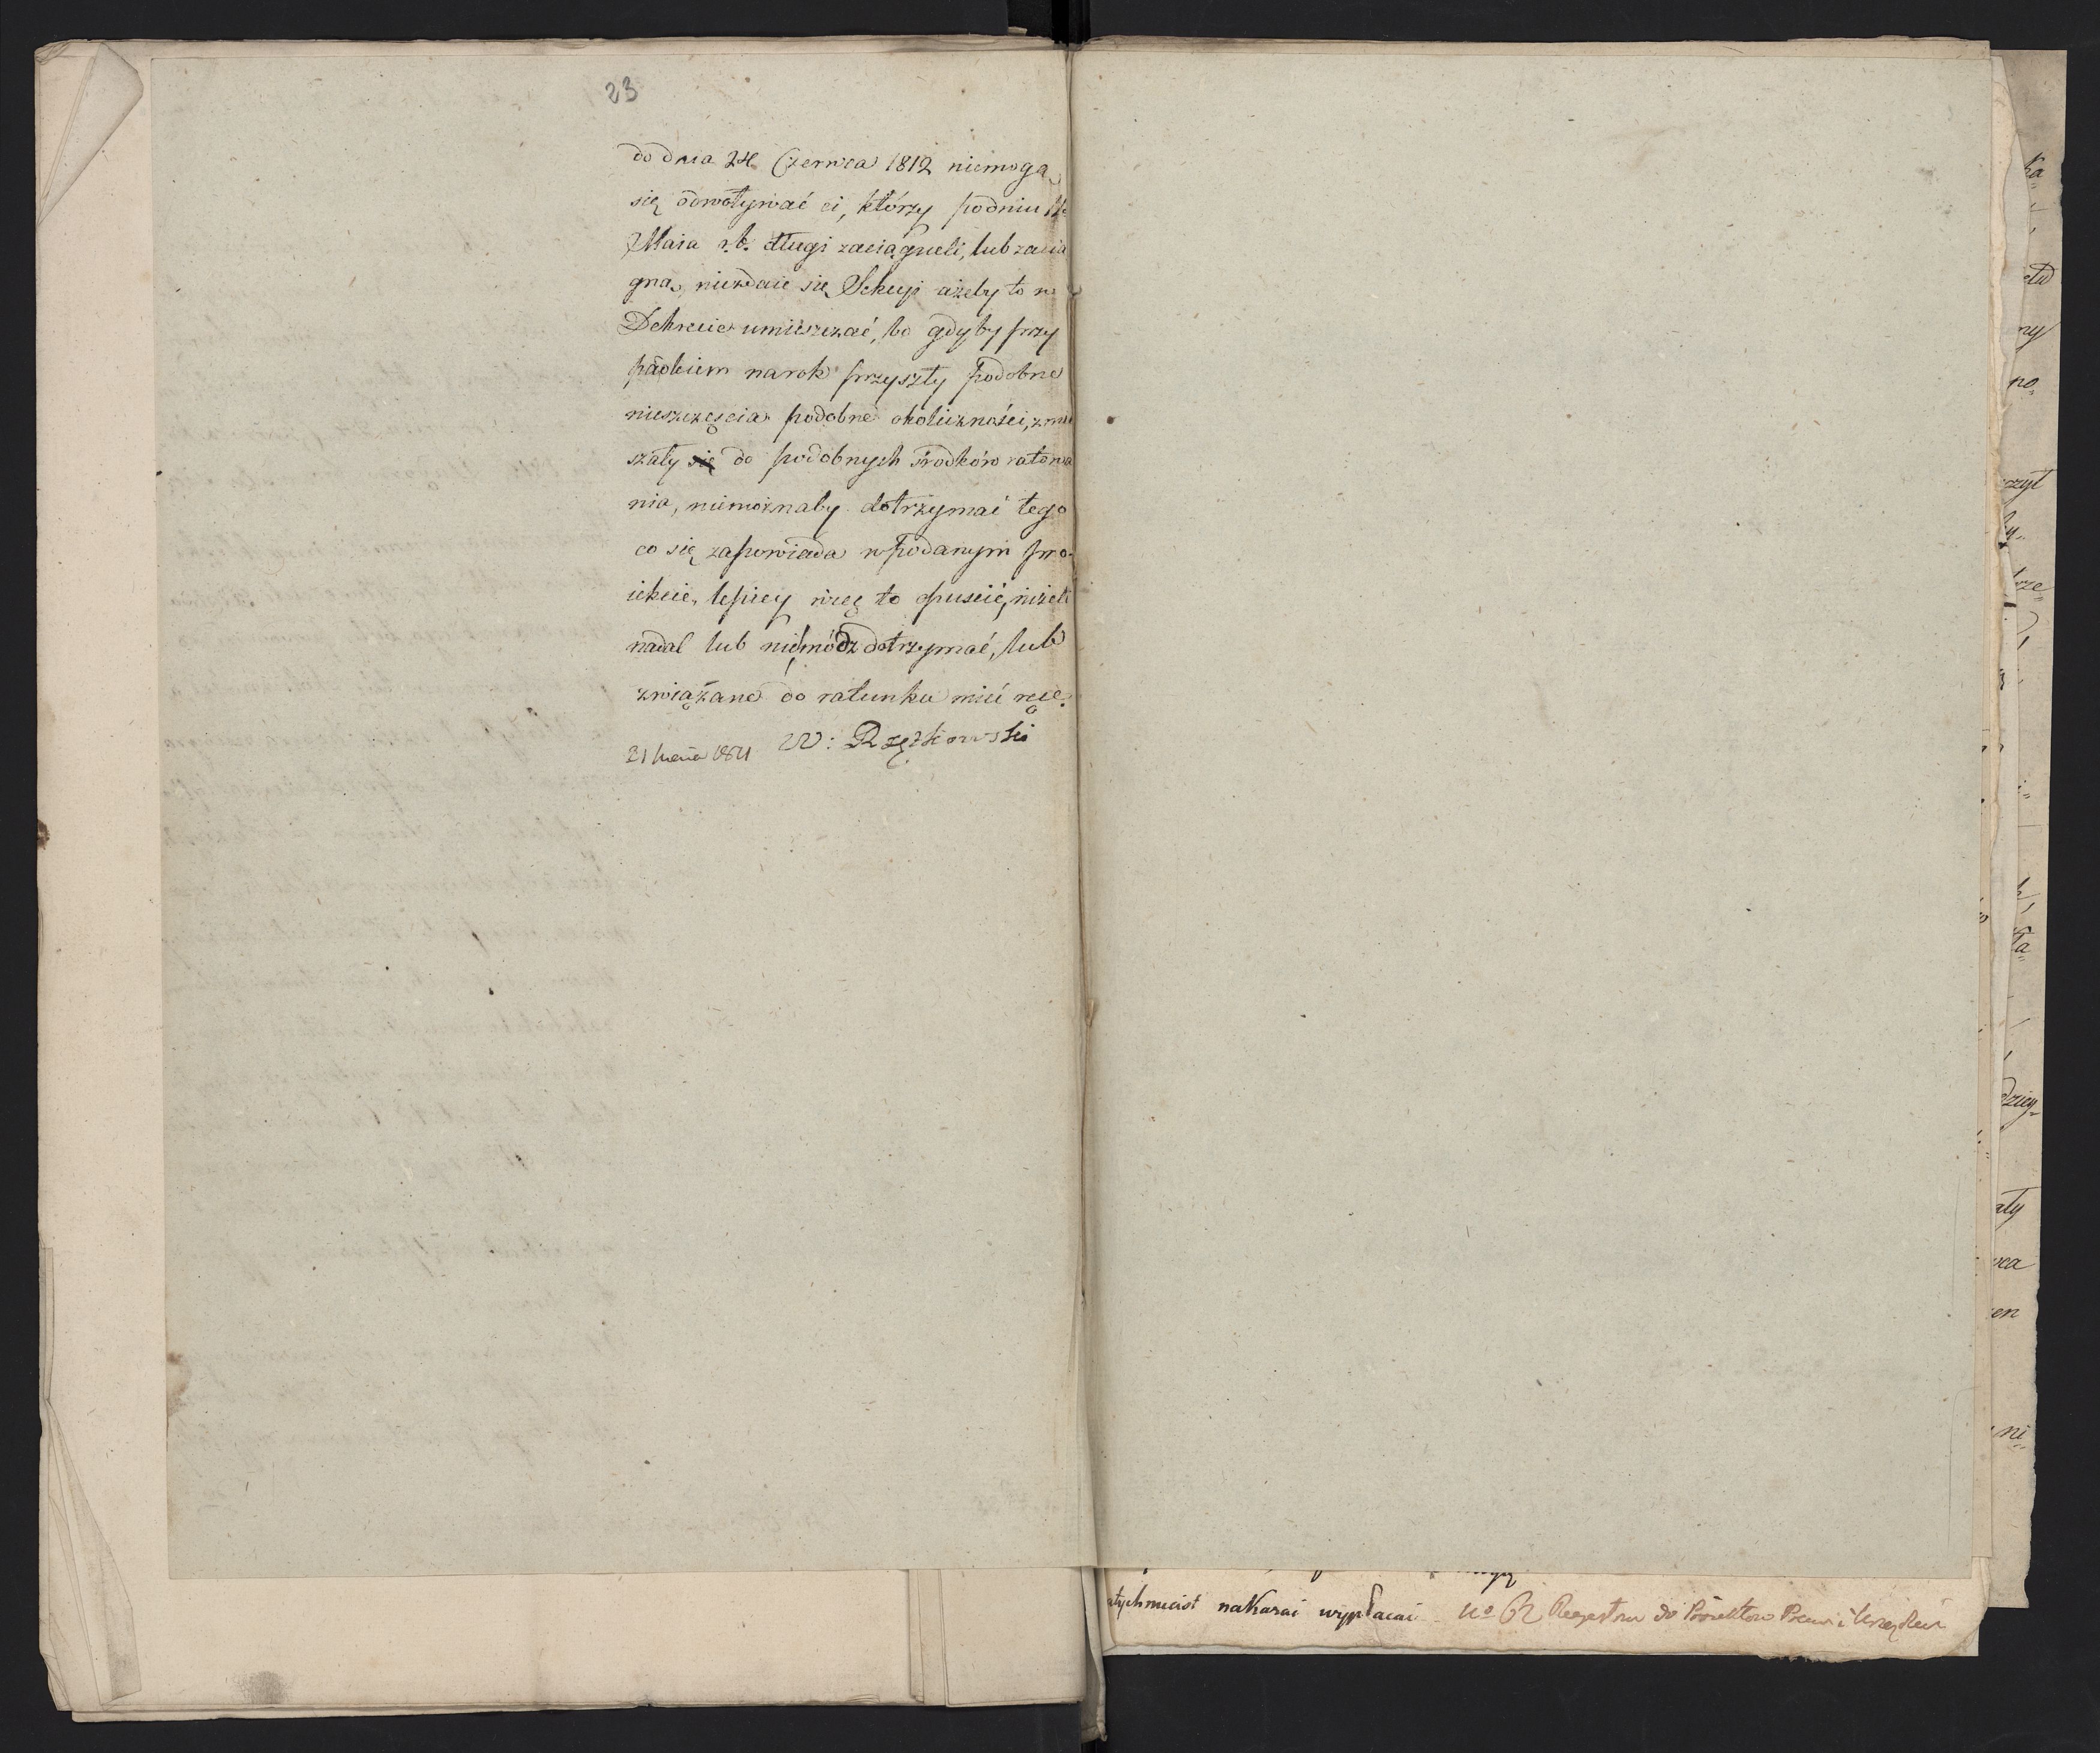 23
do dnia 24 Czerwca 1812 niemogą
się odwoływać ci, którzy podniu
Maia r.b. długi zaciągneli, lub zacią
gną, niezdaie się Sekcyi ażeby to w
Dekrecie umieszczać, bo gdyby przy
padkiem narok przyszły podobne
nieszczęścia podobne okoliczności, zmu
szały się do podobnych środków ratowa
nia, niemożnaby dotrzymać tego
co się zapowiada w podanym pro
iekcie, lepiey więc to opuścić, niżeli
nadal lub niemódz dotrzymać, lub
związane do ratunku mieć ręce.
W: Rzętkowski
21
natychmiast nakazać wypłacać No 62 Regestru do Proiektow Praw i Urządzeń